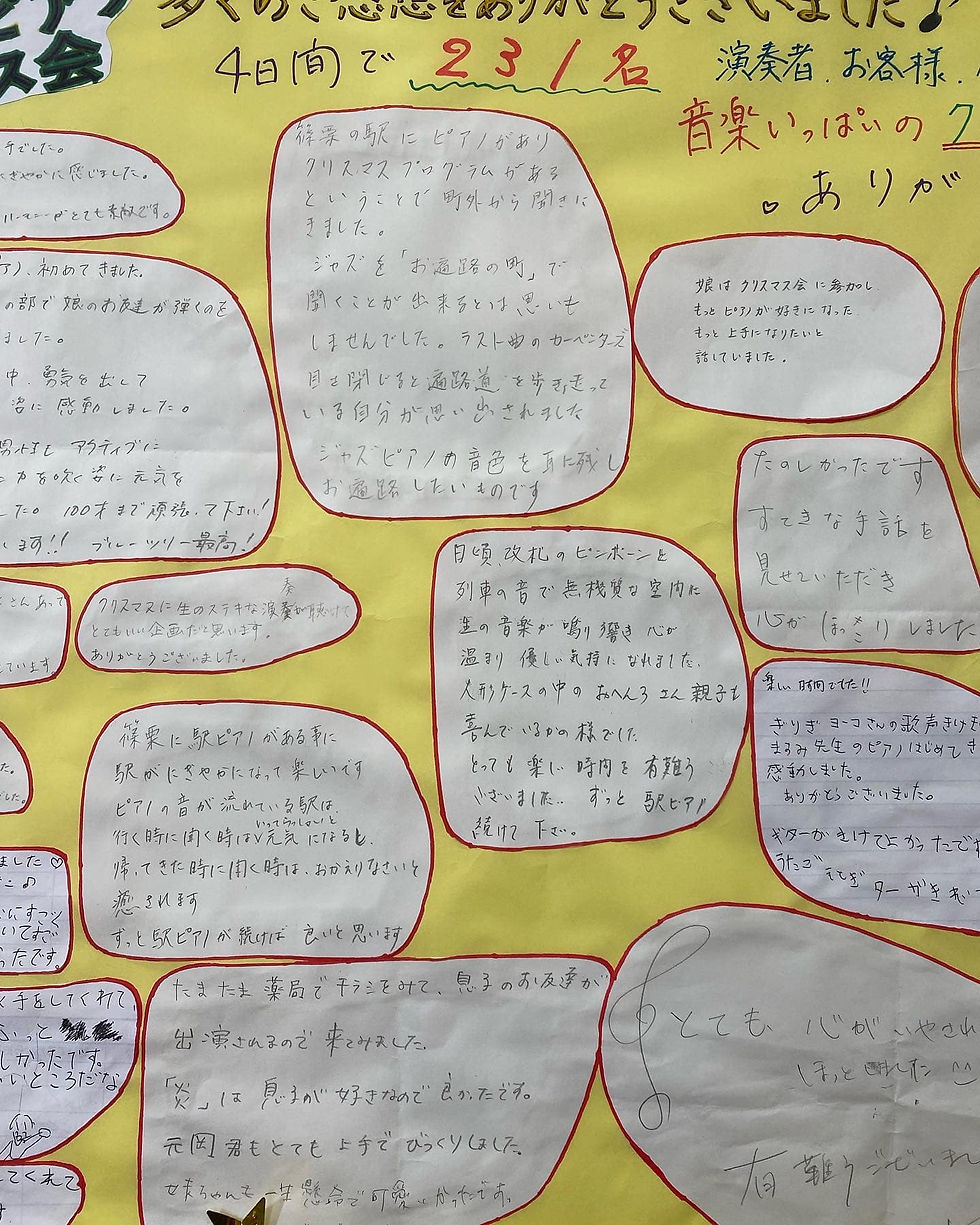 多くのご感想をありがとうございました♪
ス会
4日間で 231名
演奏者、お客様、
音楽いっぱいの
♡ありが
手でした。
ぎやかに感じました。
ハーモニーがとても素敵です。
篠栗の駅にピアノがあり
クリスマスプログラムがある
ということで町外から聞きに
きました。
ジャズを「お遍路の町」で
聞くことが出来るとは思いも
しませんでした。ラスト曲のカーペンターズ
目を閉じると遍路道を歩き走って
いる自分が思い出されました
ジャズピアノの音色を耳に残し
お遍路したいものです
娘はクリスマス会に参加し、
もっとピアノが好きになった
もっと上手になりたいと
話していました。
初めてきました。
の部で娘のお友達が弾くのを
ました。
中、勇気を出して
姿に感動しました。
アクティブに
カを吹く姿に元気を
した。100才まで頑張って下さい!
します!! ブルーツリー最高!
たのしかったです
すてきな手話を
見せていただき
心がほっこりしました
さんあって
ています
クリスマスに生のステキな演奏が聴けて
とてもいい企画だと思います。
ありがとうございました。
日頃、改札のピンポーンと
列車の音で無機質な空間に
生の音楽が鳴り響き心が
温まり優しい気持になれました。
人形ケースの中のおへんろさん親子も
喜んでいるかの様でした。
とっても楽しい時間を有難う
ございました。ずっと駅ピアノ
続けて下さい。
楽しい時間でした!!
きりぎヨーコさんの歌声きけて
まるみ先生のピアノはじめてき
感動しました。
ありがとうございました。
ギターがきけてよかったです
うたごえ
篠栗に駅ピアノがある事に
駅がにぎやかになって楽しいです
ピアノの音が流れている駅は、
行く時に聞く時はいってらっしゃいと元気になるし、
帰ってきた時に聞く時は、おかえりなさいと
癒されます
ずっと駅ピアノが続けば良いと思います
ました♡
にすごく
いてすご
ったです。
たまたま薬局でチラシをみて、息子のお友達が
出演されるので来てみました。
「炎」は息子が好きなので良かったです。
元岡君もとても上手でびっくりしました。
妹ちゃんも一生懸命で可愛いかったです。
とても心がいやされ
ほっとしました
有難うございました
く手をしてくれて、
しかったです。
いところだな
てくれて